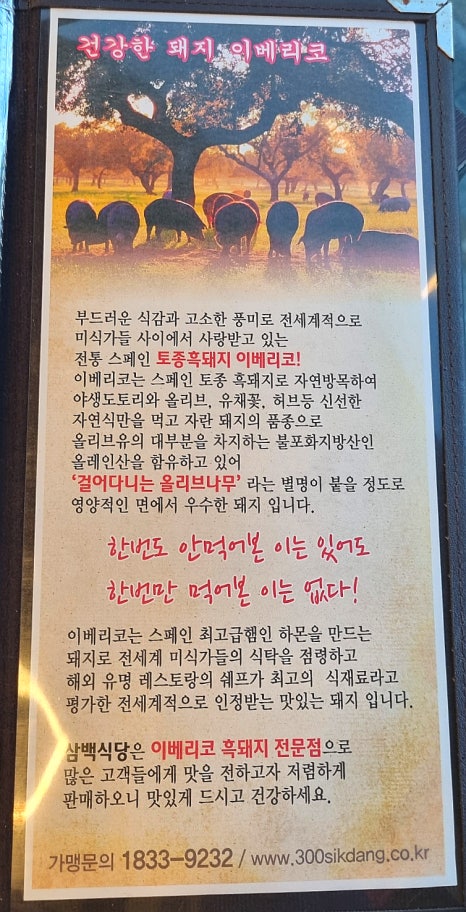 건강한 돼지 이베리코
부드러운 식감과 고소한 풍미로 전세계적으로
미식가들 사이에서 사랑받고 있는
전통 스페인 토종흑돼지 이베리코!
이베리코는 스페인 토종 흑돼지로 자연방목하여
야생도토리와 올리브, 유채꽃, 허브등 신선한
자연식만을 먹고 자란 돼지의 품종으로
올리브유의 대부분을 차지하는 불포화지방산인
올레인산을 함유하고 있어
'걸어다니는 올리브나무' 라는 별명이 붙을 정도로
영양적인 면에서 우수한 돼지 입니다.
한번도 안먹어본 이는 있어도
한번만 먹어본 이는 없다!
이베리코는 스페인 최고급햄인 하몬을 만드는
돼지로 전세계 미식가들의 식탁을 점령하고
해외 유명 레스토랑의 쉐프가 최고의 식재료라고
평가한 전세계적으로 인정받는 맛있는 돼지 입니다.
삼백식당은 이베리코 흑돼지 전문점으로
많은 고객들에게 맛을 전하고자 저렴하게
판매하오니 맛있게 드시고 건강하세요.
가맹문의 1833-9232 / www.300sikdang.co.kr